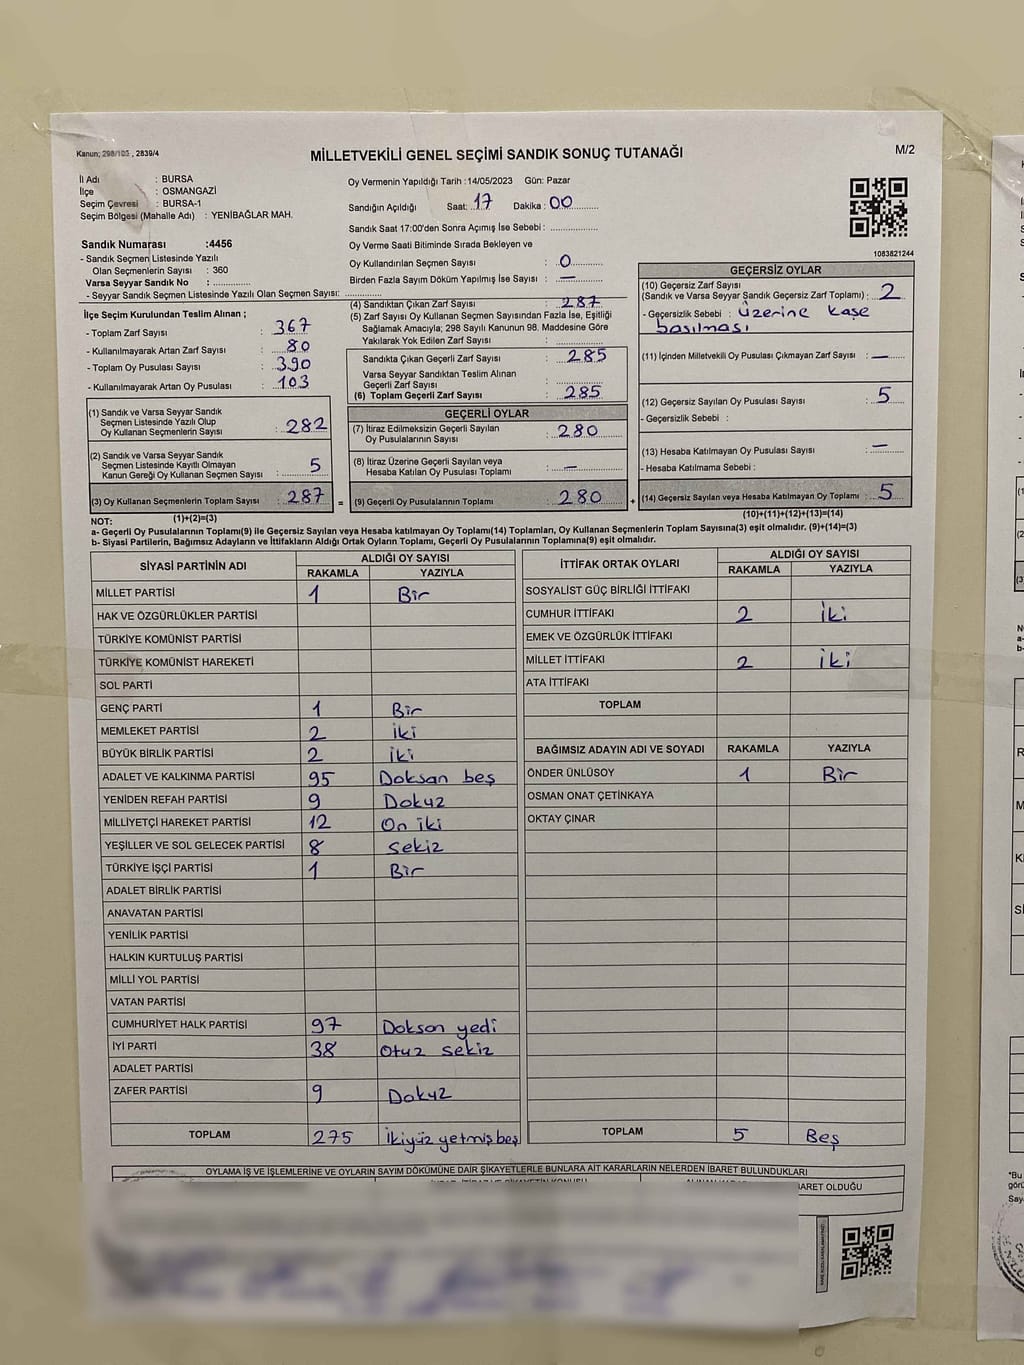 Kanun; 298/105 , 2839/4
MİLLETVEKİLİ GENEL SEÇİMİ SANDIK SONUÇ TUTANAĞI
M/2
İl Adı : BURSA
İlçe : OSMANGAZİ
Seçim Çevresi : BURSA-1
Seçim Bölgesi (Mahalle Adı) : YENİBAĞLAR MAH.
Sandık Numarası :4456
- Sandık Seçmen Listesinde Yazılı
Olan Seçmenlerin Sayısı : 360
Varsa Seyyar Sandık No :
- Seyyar Sandık Seçmen Listesinde Yazılı Olan Seçmen Sayısı:
Oy Vermenin Yapıldığı Tarih :14/05/2023 Gün: Pazar
Sandığın Açıldığı Saat: 17 Dakika : 00
Sandık Saat 17:00'den Sonra Açımış İse Sebebi :
Oy Verme Saati Bitiminde Sırada Bekleyen ve
Oy Kullandırılan Seçmen Sayısı : 0
Birden Fazla Sayım Döküm Yapılmış İse Sayısı : —
1083821244
İlçe Seçim Kurulundan Teslim Alınan ;
- Toplam Zarf Sayısı : 367
- Kullanılmayarak Artan Zarf Sayısı : 80
- Toplam Oy Pusulası Sayısı : 390
- Kullanılmayarak Artan Oy Pusulası : 103
(1) Sandık ve Varsa Seyyar Sandık
Seçmen Listesinde Yazılı Olup
Oy Kullanan Seçmenlerin Sayısı : 282
(2) Sandık ve Varsa Seyyar Sandık
Seçmen Listesinde Kayıtlı Olmayan
Kanun Gereği Oy Kullanan Seçmen Sayısı : 5
(3) Oy Kullanan Seçmenlerin Toplam Sayısı : 287 =
(1)+(2)=(3)
(4) Sandıktan Çıkan Zarf Sayısı : 287
(5) Zarf Sayısı Oy Kullanan Seçmen Sayısından Fazla İse, Eşitliği
Sağlamak Amacıyla; 298 Sayılı Kanunun 98. Maddesine Göre
Yakılarak Yok Edilen Zarf Sayısı :
Sandıkta Çıkan Geçerli Zarf Sayısı : 285
Varsa Seyyar Sandıktan Teslim Alınan
Geçerli Zarf Sayısı :
(6) Toplam Geçerli Zarf Sayısı : 285
GEÇERLİ OYLAR
(7) İtiraz Edilmeksizin Geçerli Sayılan
Oy Pusulalarının Sayısı : 280
(8) İtiraz Üzerine Geçerli Sayılan veya
Hesaba Katılan Oy Pusulası Toplamı : —
(9) Geçerli Oy Pusulalarının Toplamı : 280 +
GEÇERSİZ OYLAR
(10) Geçersiz Zarf Sayısı
(Sandık ve Varsa Seyyar Sandık Geçersiz Zarf Toplamı) : 2
- Geçersizlik Sebebi : üzerine kaşe
basılması
(11) İçinden Milletvekili Oy Pusulası Çıkmayan Zarf Sayısı : —
(12) Geçersiz Sayılan Oy Pusulası Sayısı : 5
- Geçersizlik Sebebi :
(13) Hesaba Katılmayan Oy Pusulası Sayısı : —
- Hesaba Katılmama Sebebi :
(14) Geçersiz Sayılan veya Hesaba Katılmayan Oy Toplamı : 5
(10)+(11)+(12)+(13)=(14)
NOT:
a- Geçerli Oy Pusulalarının Toplamı(9) ile Geçersiz Sayılan veya Hesaba katılmayan Oy Toplamı(14) Toplamları, Oy Kullanan Seçmenlerin Toplam Sayısına(3) eşit olmalıdır. (9)+(14)=(3)
b- Siyasi Partilerin, Bağımsız Adayların ve İttifakların Aldığı Ortak Oyların Toplamı, Geçerli Oy Pusulalarının Toplamına(9) eşit olmalıdır.
SİYASİ PARTİNİN ADI ALDIĞI OY SAYISI
RAKAMLA YAZIYLA
MİLLET PARTİSİ 1 Bir
HAK VE ÖZGÜRLÜKLER PARTİSİ
TÜRKİYE KOMÜNİST PARTİSİ
TÜRKİYE KOMÜNİST HAREKETİ
SOL PARTİ
GENÇ PARTİ 1 Bir
MEMLEKET PARTİSİ 2 iki
BÜYÜK BİRLİK PARTİSİ 2 iki
ADALET VE KALKINMA PARTİSİ 95 Doksan beş
YENİDEN REFAH PARTİSİ 9 Dokuz
MİLLİYETÇİ HAREKET PARTİSİ 12 On iki
YEŞİLLER VE SOL GELECEK PARTİSİ 8 sekiz
TÜRKİYE İŞÇİ PARTİSİ 1 Bir
ADALET BİRLİK PARTİSİ
ANAVATAN PARTİSİ
YENİLİK PARTİSİ
HALKIN KURTULUŞ PARTİSİ
MİLLİ YOL PARTİSİ
VATAN PARTİSİ
CUMHURİYET HALK PARTİSİ 97 Doksan yedi
İYİ PARTİ 38 Otuz sekiz
ADALET PARTİSİ
ZAFER PARTİSİ 9 Dokuz
TOPLAM 275 ikiyüz yetmiş beş
İTTİFAK ORTAK OYLARI ALDIĞI OY SAYISI
RAKAMLA YAZIYLA
SOSYALİST GÜÇ BİRLİĞİ İTTİFAKI
CUMHUR İTTİFAKI 2 iki
EMEK VE ÖZGÜRLÜK İTTİFAKI
MİLLET İTTİFAKI 2 iki
ATA İTTİFAKI
TOPLAM
BAĞIMSIZ ADAYIN ADI VE SOYADI RAKAMLA YAZIYLA
ÖNDER ÜNLÜSOY 1 Bir
OSMAN ONAT ÇETİNKAYA
OKTAY ÇINAR
TOPLAM 5 Beş
OYLAMA İŞ VE İŞLEMLERİNE VE OYLARIN SAYIM DÖKÜMÜNE DAİR ŞİKAYETLERLE BUNLARA AİT KARARLARIN NELERDEN İBARET BULUNDUKLARI
BARET OLDUĞU